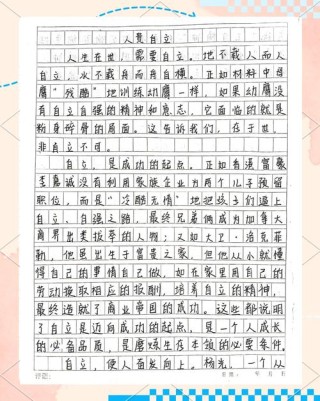 人贵自立
人生在世，需要自立。地不载人而人
自立，水不载舟而舟自横。正如材料中母
鹰“残酷”地训练幼鹰一样，如果幼鹰没
有自立自强的精神和意志，它面临的就是
粉身碎骨的局面。这告诉我们，存于世，
非自立不可。
自立，是成功的起点。正如香港富豪
李嘉诚没有利用家族企业为两个儿子预留
职位，而是“冷酷无情”地把孩子们逼上
自立、自强之路，最终兄弟俩成为加拿大
商界出类拔萃的人物；又如大卫·洛克菲
勒，他虽出生于富贵之家，但他从小就懂
得自己的事情自己做，如在家里用自己的
劳动换取相应的报酬，培养自立的精神，
最终造就了商业帝国的成功。这些都说明
了自立是迈向成功的起点，是一个人成长
的必备品质，是磨炼生存本领的必要条件。
自立，使人面发向上。杨光，一个从
评语：